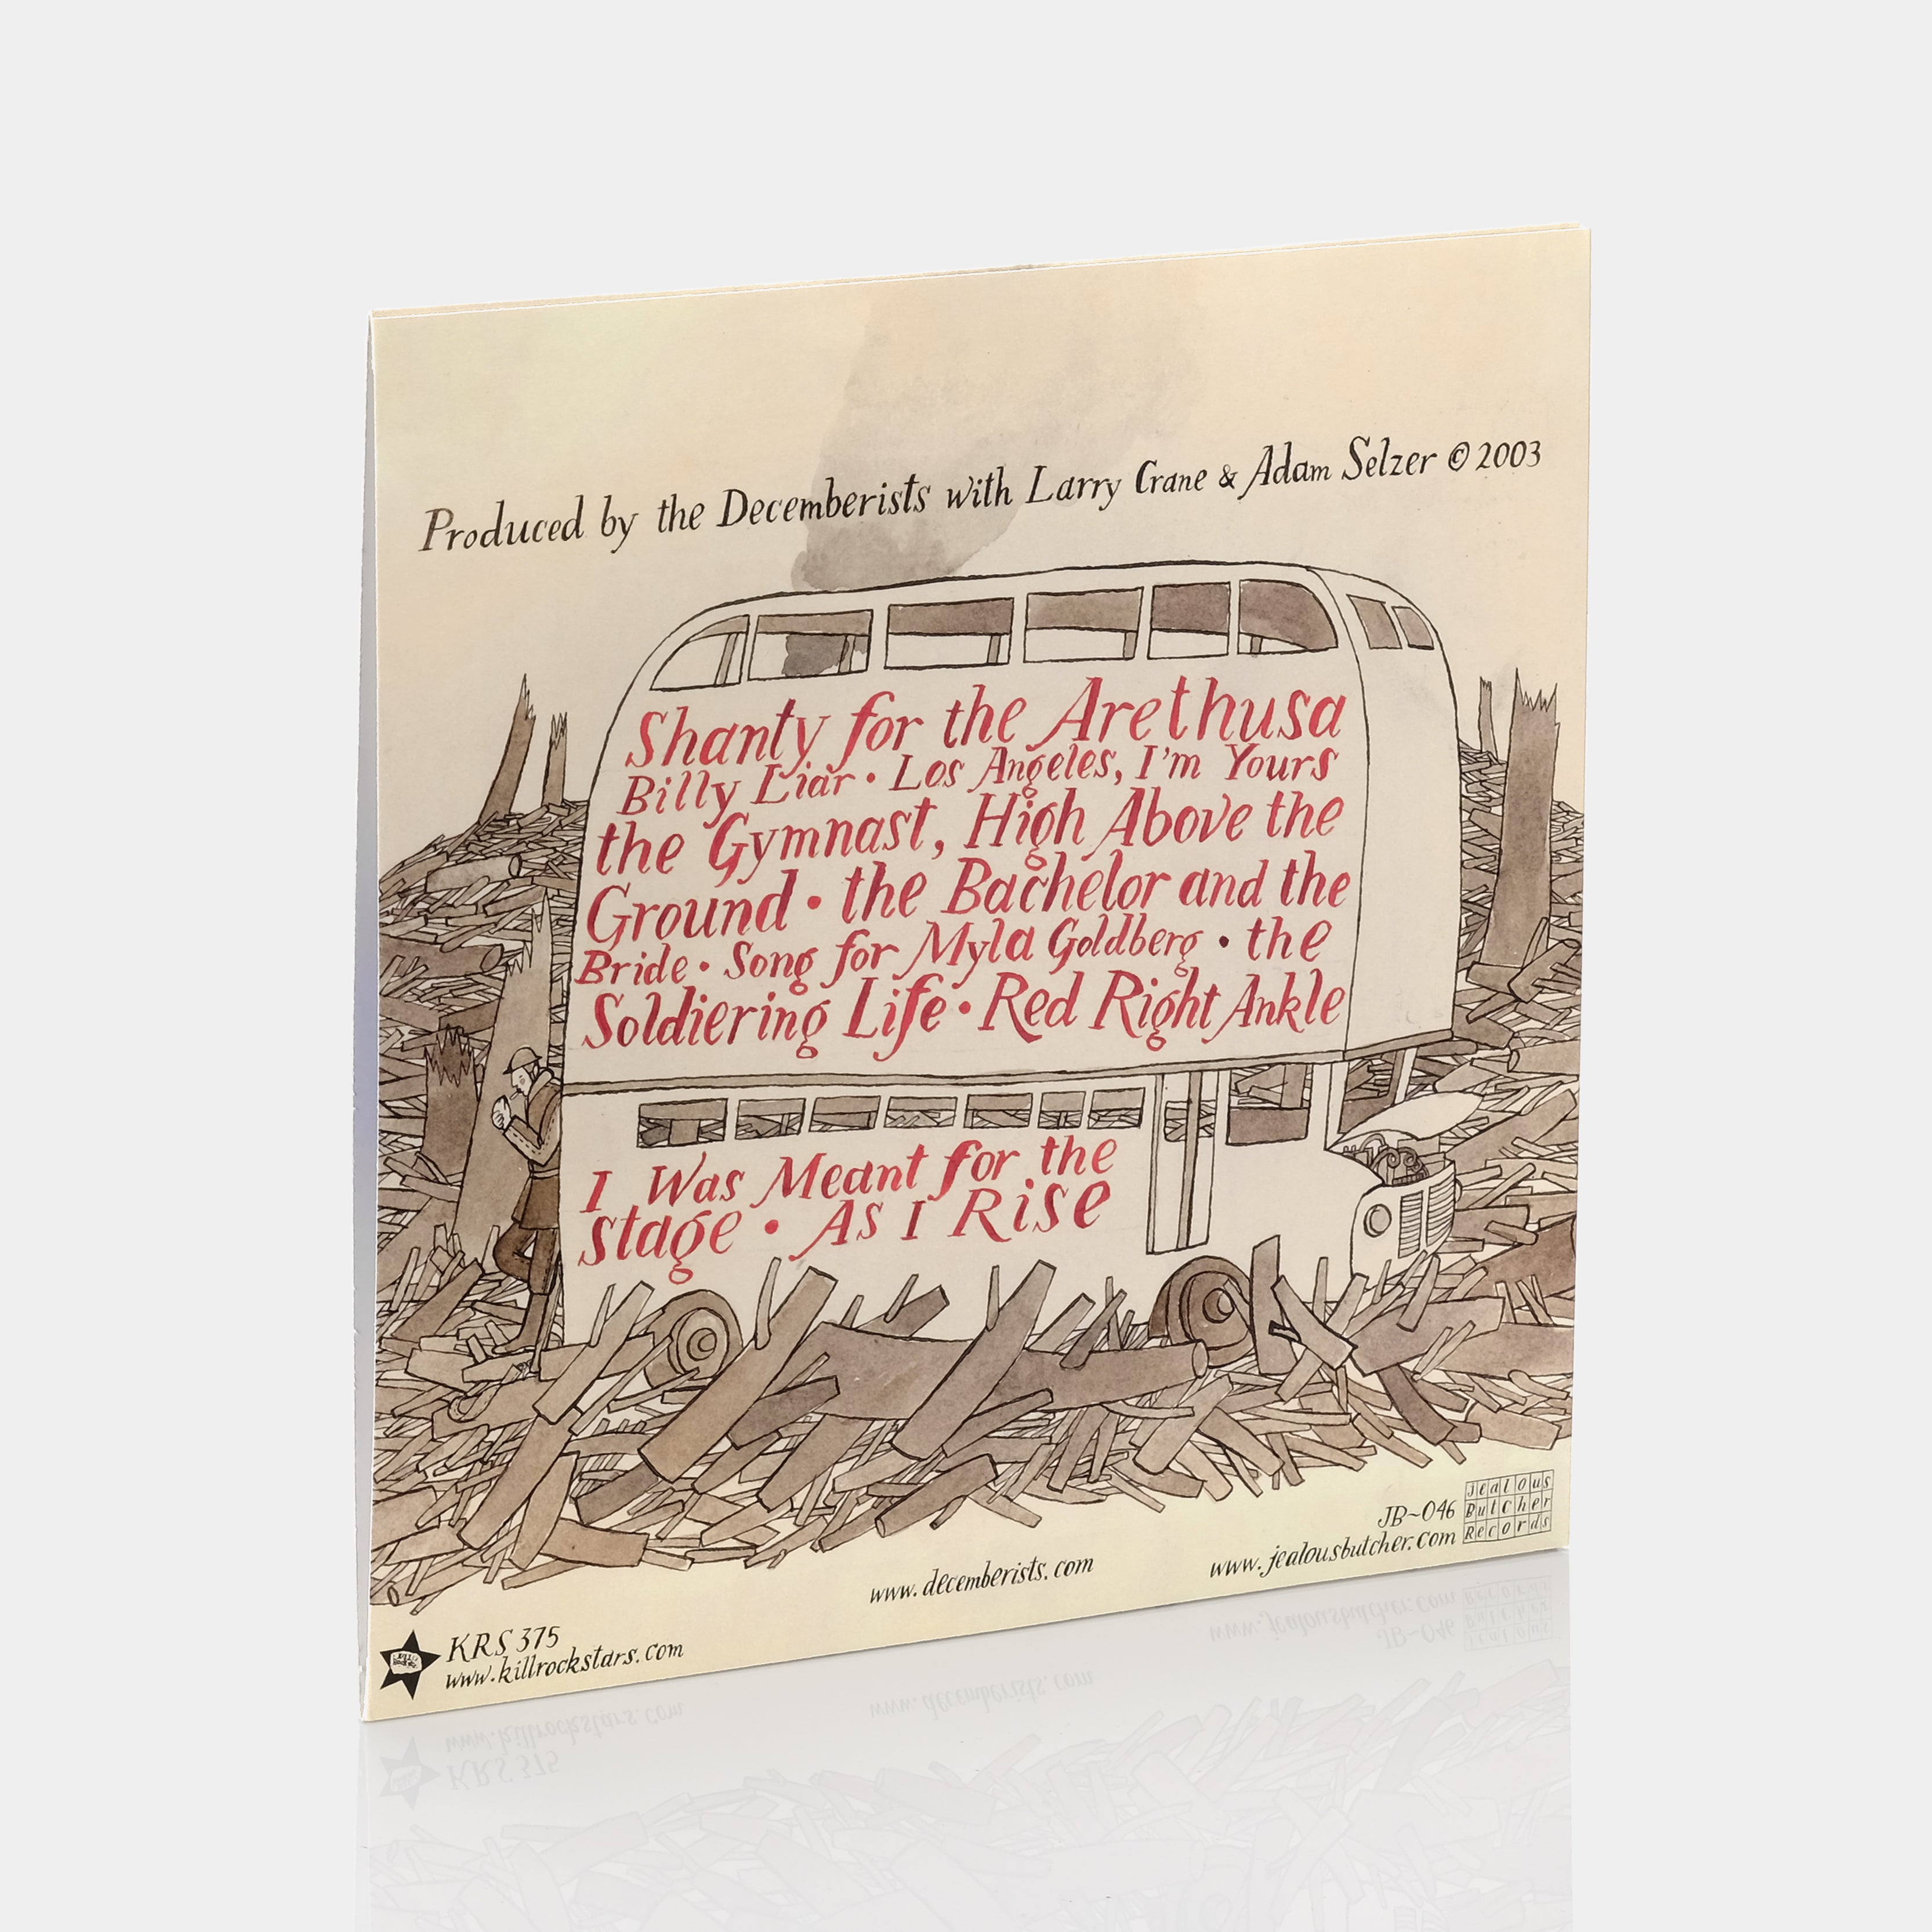 Produced by the Decemberists with Larry Crane & Adam Selzer © 2003
Shanty for the Arethusa
Billy Liar • Los Angeles, I'm Yours
the Gymnast, High Above the
Ground • the Bachelor and the
Bride • Song for Myla Goldberg • the
Soldiering Life • Red Right Ankle
I Was Meant for the
stage • As I Rise
JB~046
www.jealousbutcher.com
Jealous
Butcher
Records
www.decemberists.com
KRS 375
www.killrockstars.com